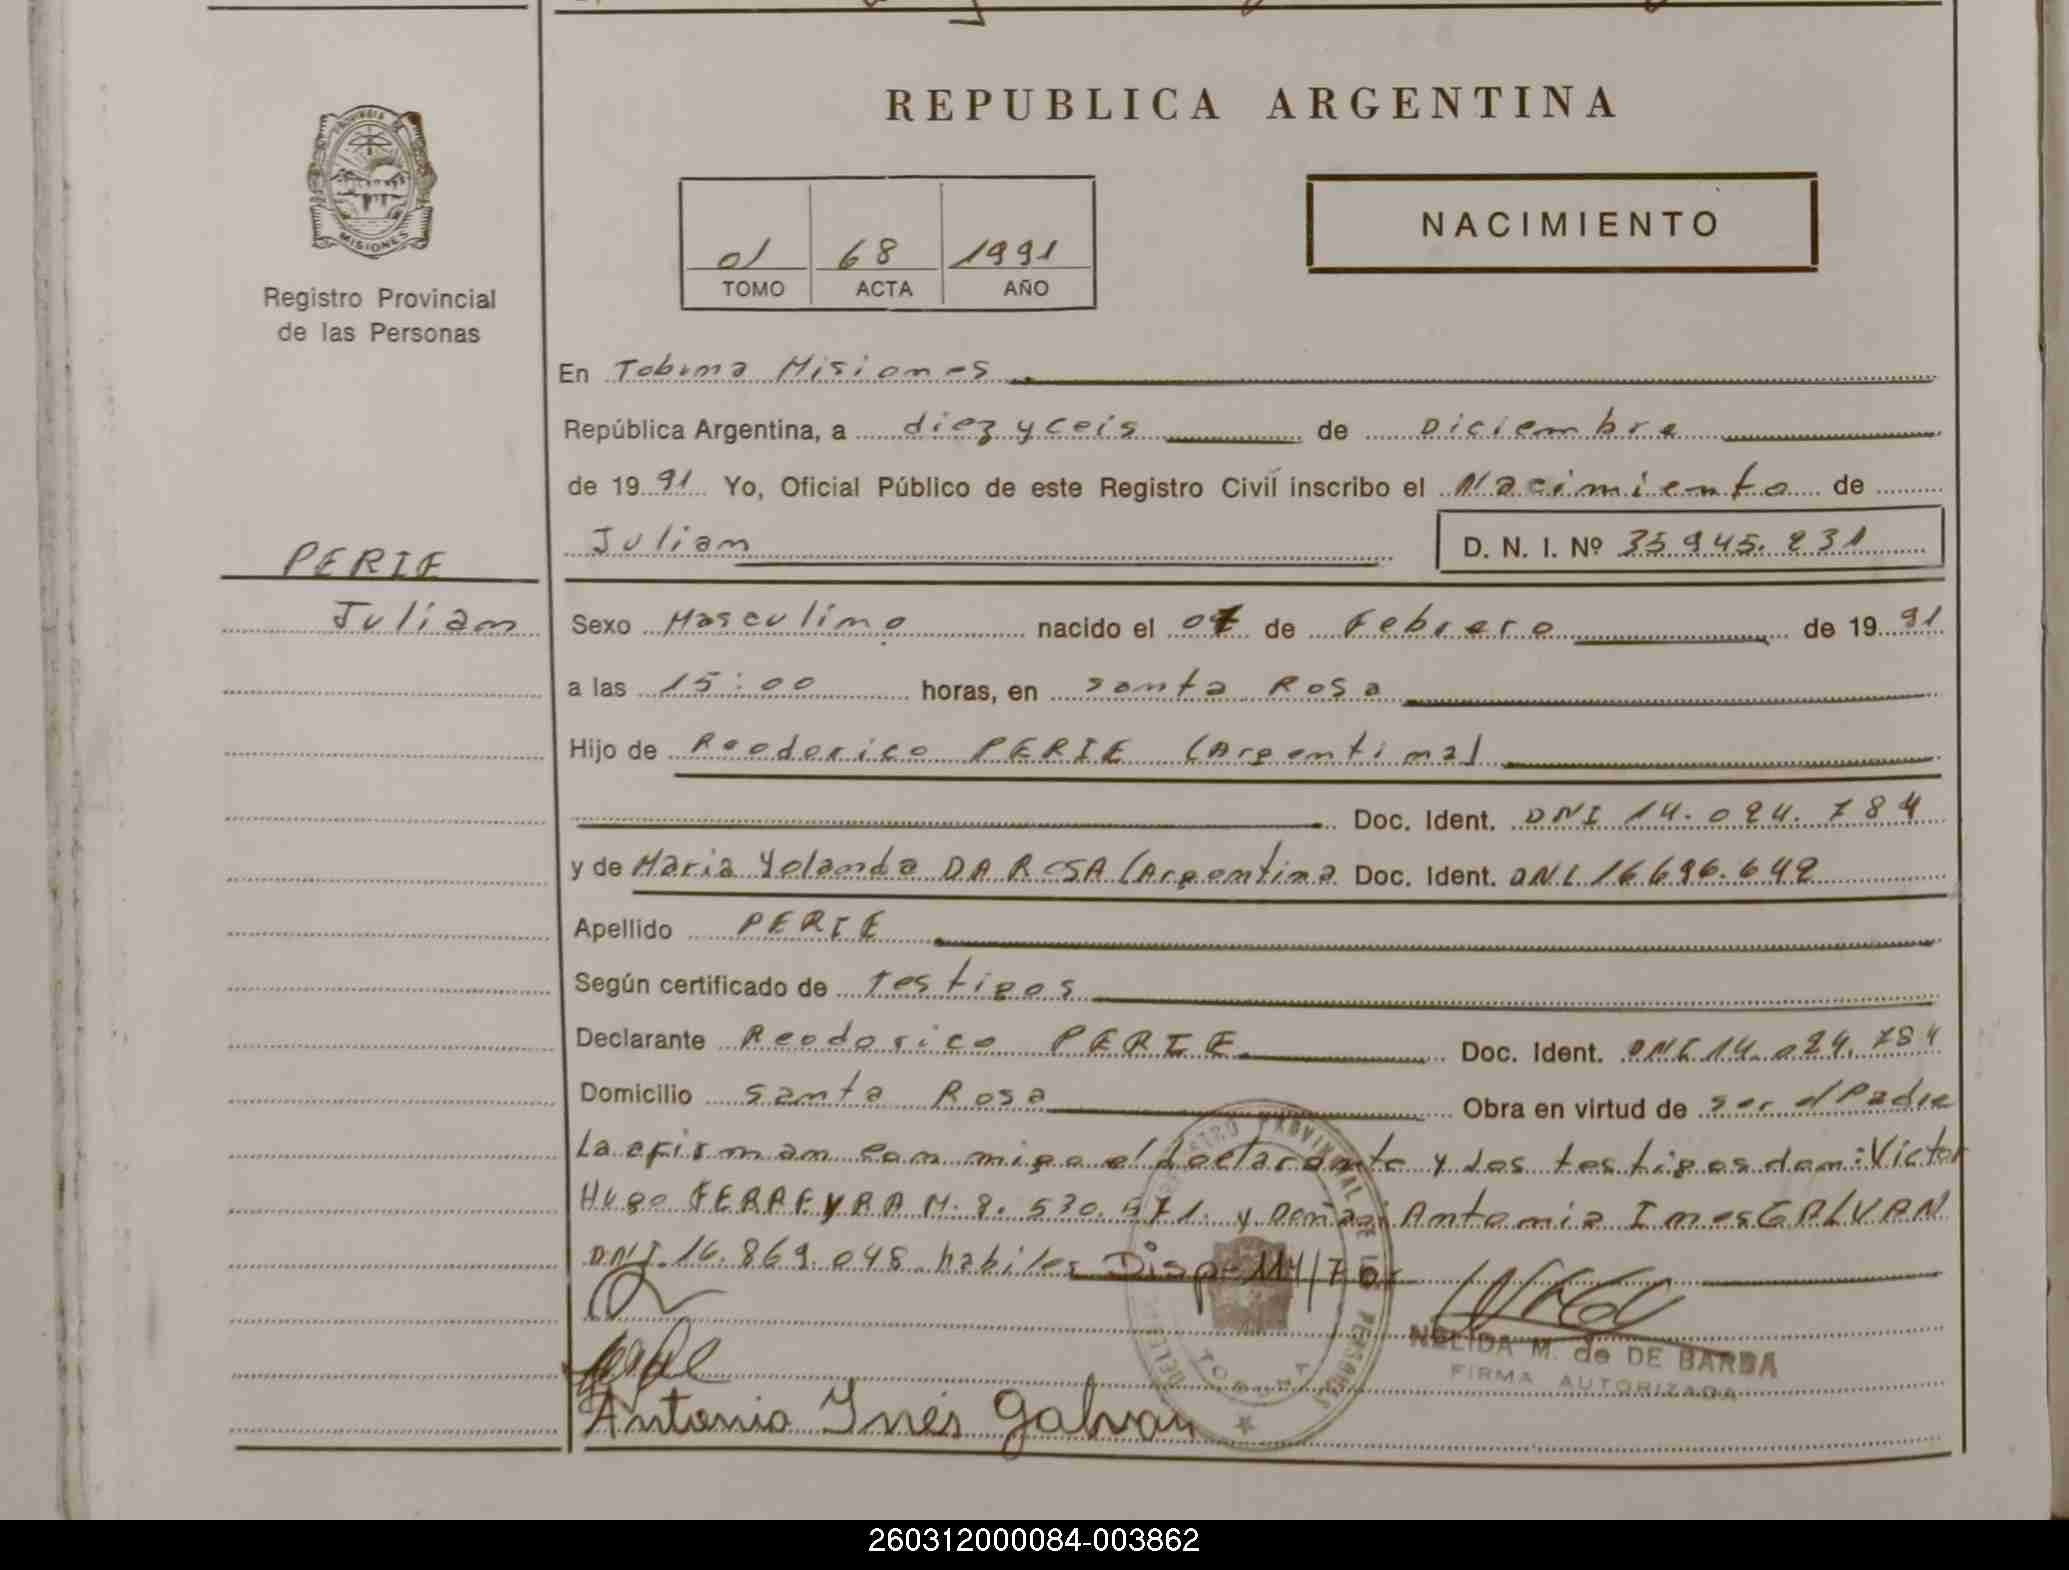 REPUBLICA ARGENTINA
PROVINCIA DE
MISIONES
Registro Provincial
de las Personas
01 68 1991
TOMO ACTA AÑO
NACIMIENTO
En Tobuna Misiones
República Argentina, a diez y ceis de Diciembre
de 1991 Yo, Oficial Público de este Registro Civil inscribo el Nacimiento de
Julian D. N. I. Nº 35945.231
PERIE
Julian
Sexo Masculino nacido el 07 de Febrero de 1991
a las 15:00 horas, en santa Rosa
Hijo de Reodorico PERIE (Argentina)
Doc. Ident. DNI 14.024.784
y de Maria Yolanda DA ROSA (Argentina Doc. Ident. DNI 16696.642
Apellido PERIE
Según certificado de testigos
Declarante Reodorico PERIE Doc. Ident. DNI 14.024.784
Domicilio santa Rosa Obra en virtud de ser el Padre
La firman con migo el declarante y los testigos don: Victor
Hugo FERREYRA M. 8. 530.571. y Doña: Antonia Ines GALVAN
DNI. 16.869.048 habiles Disp 114/76
NELIDA M. de DE BARBA
FIRMA AUTORIZADA
REGISTRO PROVINCIAL DE LAS PERSONAS
TOBUNA
Antonia Inés Galvan
260312000084-003862